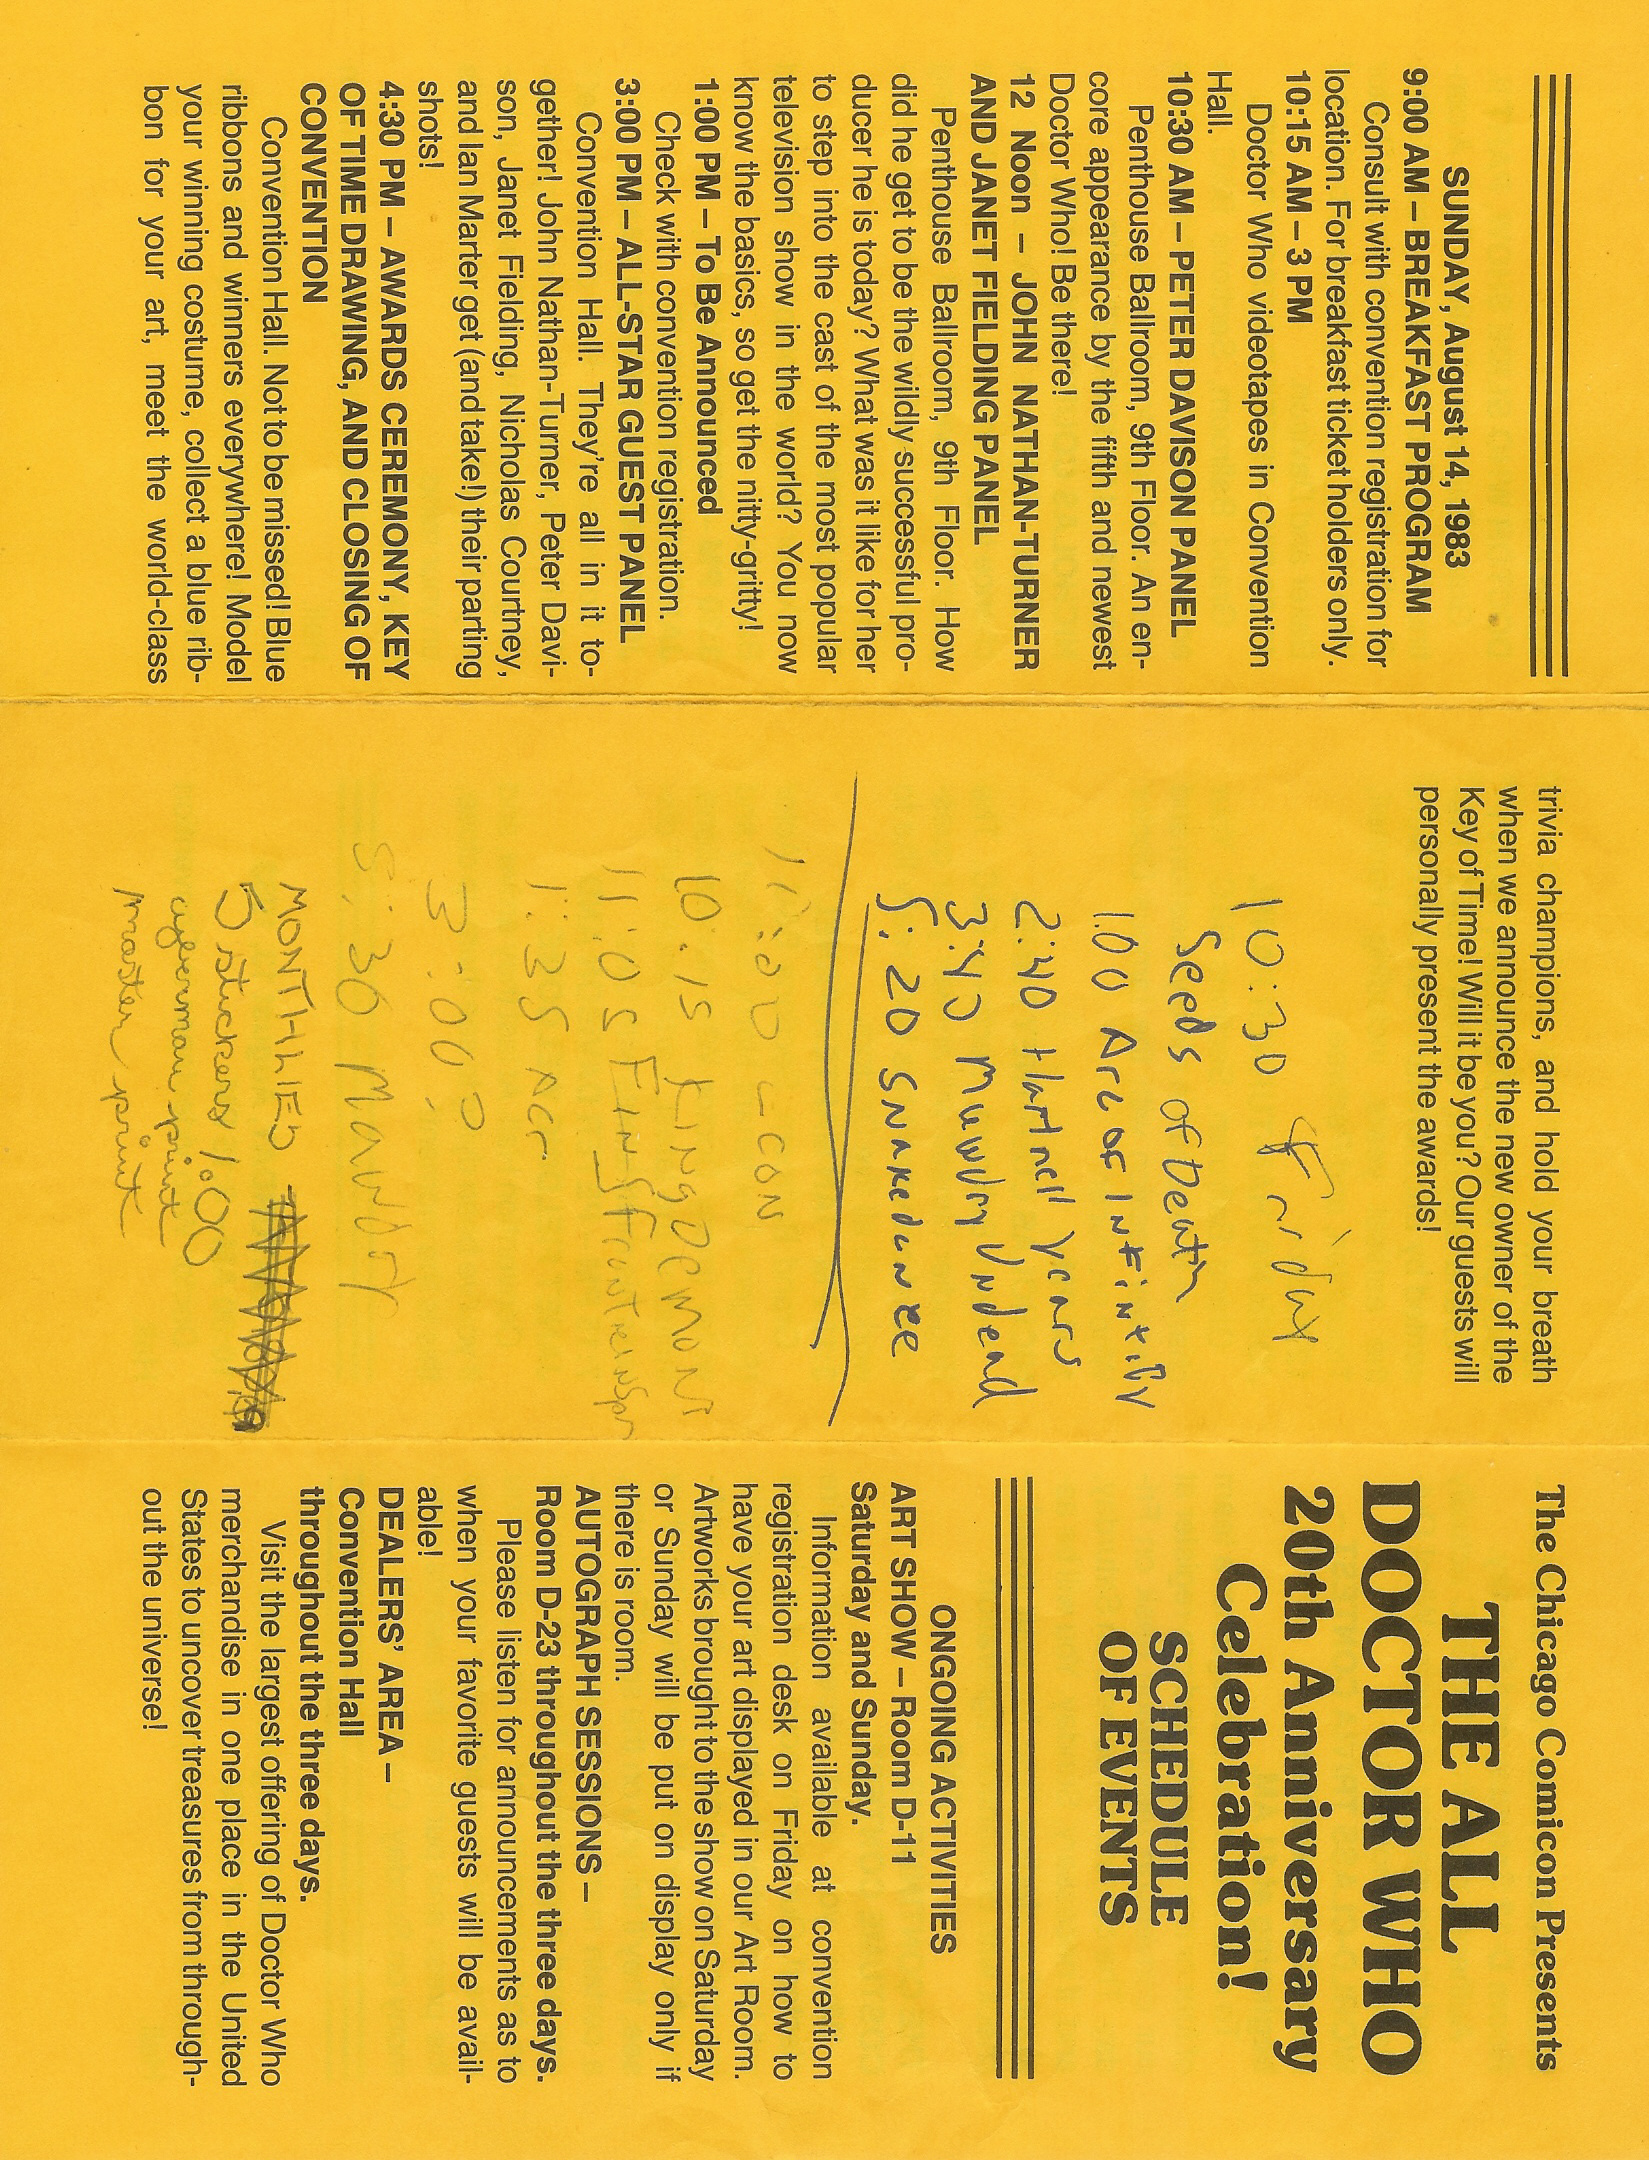 SUNDAY, August 14, 1983
9:00 AM – BREAKFAST PROGRAM
Consult with convention registration for
location. For breakfast ticket holders only.
10:15 AM – 3 PM
Doctor Who videotapes in Convention
Hall.
10:30 AM – PETER DAVISON PANEL
Penthouse Ballroom, 9th Floor. An en-
core appearance by the fifth and newest
Doctor Who! Be there!
12 Noon – JOHN NATHAN-TURNER
AND JANET FIELDING PANEL
Penthouse Ballroom, 9th Floor. How
did he get to be the wildly successful pro-
ducer he is today? What was it like for her
to step into the cast of the most popular
television show in the world? You now
know the basics, so get the nitty-gritty!
1:00 PM – To Be Announced
Check with convention registration.
3:00 PM – ALL-STAR GUEST PANEL
Convention Hall. They're all in it to-
gether! John Nathan-Turner, Peter Davi-
son, Janet Fielding, Nicholas Courtney,
and Ian Marter get (and take!) their parting
shots!
4:30 PM – AWARDS CEREMONY, KEY
OF TIME DRAWING, AND CLOSING OF
CONVENTION
Convention Hall. Not to be missed! Blue
ribbons and winners everywhere! Model
your winning costume, collect a blue rib-
bon for your art, meet the world-class
trivia champions, and hold your breath
when we announce the new owner of the
Key of Time! Will it be you? Our guests will
personally present the awards!
Friday
10:30
Seeds of Death
1:00 Arc of Infintity
2:40 Hartnell years
3:45 Mawdryn Undead
5:20 Snakedance
10:15 King Demons
11:05
1:35
3:00?
5:30 Mawdry
MONTHLIES
5 stickers 1.00
cyberman print
master print
The Chicago Comicon Presents
THE ALL
DOCTOR WHO
20th Anniversary
Celebration!
SCHEDULE
OF EVENTS
ONGOING ACTIVITIES
ART SHOW – Room D-11
Saturday and Sunday.
Information available at convention
registration desk on Friday on how to
have your art displayed in our Art Room.
Artworks brought to the show on Saturday
or Sunday will be put on display only if
there is room.
AUTOGRAPH SESSIONS –
Room D-23 throughout the three days.
Please listen for announcements as to
when your favorite guests will be avail-
able!
DEALERS' AREA –
Convention Hall
throughout the three days.
Visit the largest offering of Doctor Who
merchandise in one place in the United
States to uncover treasures from through-
out the universe!